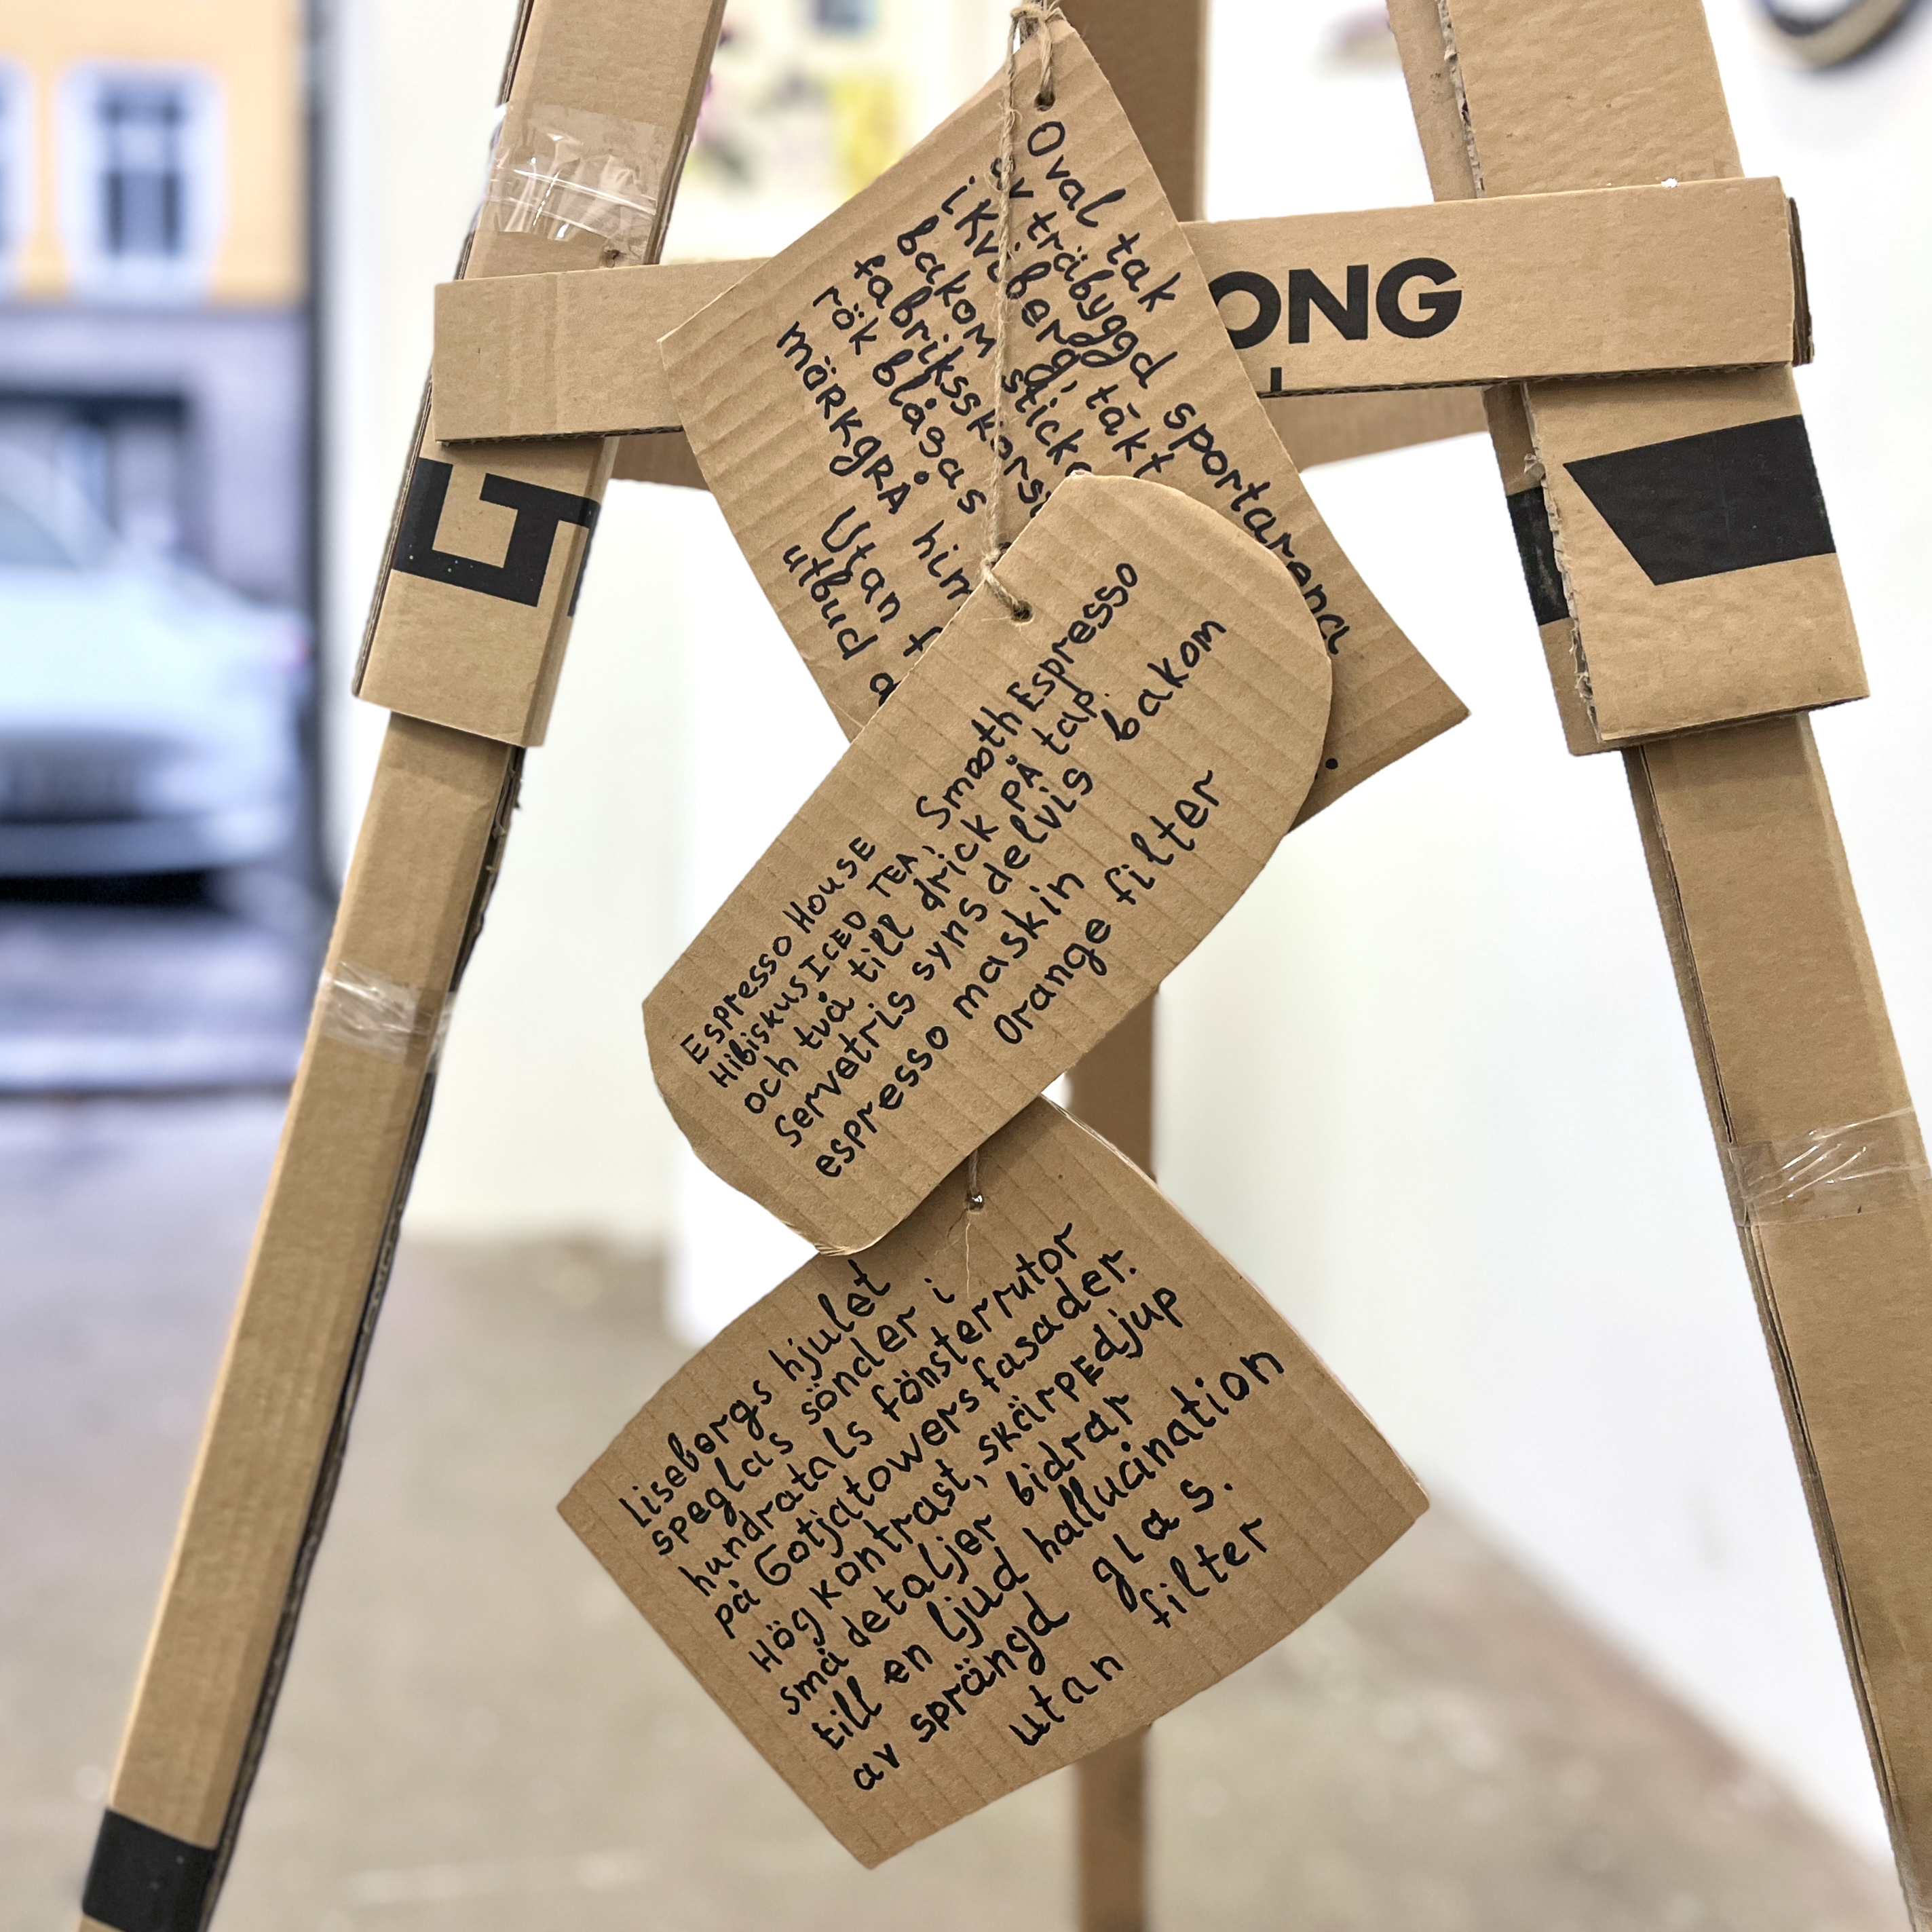 Oval tak
av träbyggd sportarena
i Kviberg, täkt
bakom sticke
fabriksskorst
rök blåsas
mörkgrå him
Utan f
utbud a
ONG
Espresso House Smooth Espresso
Hibiskus Iced Tea,
och två till drick på tap.
Servetris syns delvis bakom
espresso maskin
Orange filter
Lisebergs hjulet
speglas sönder i
hundratals fönsterrutor
på Gotjatowers fasader.
Hög kontrast, skärpedjup
små detaljer bidrar
till en ljud hallucination
av sprängd glas.
utan filter